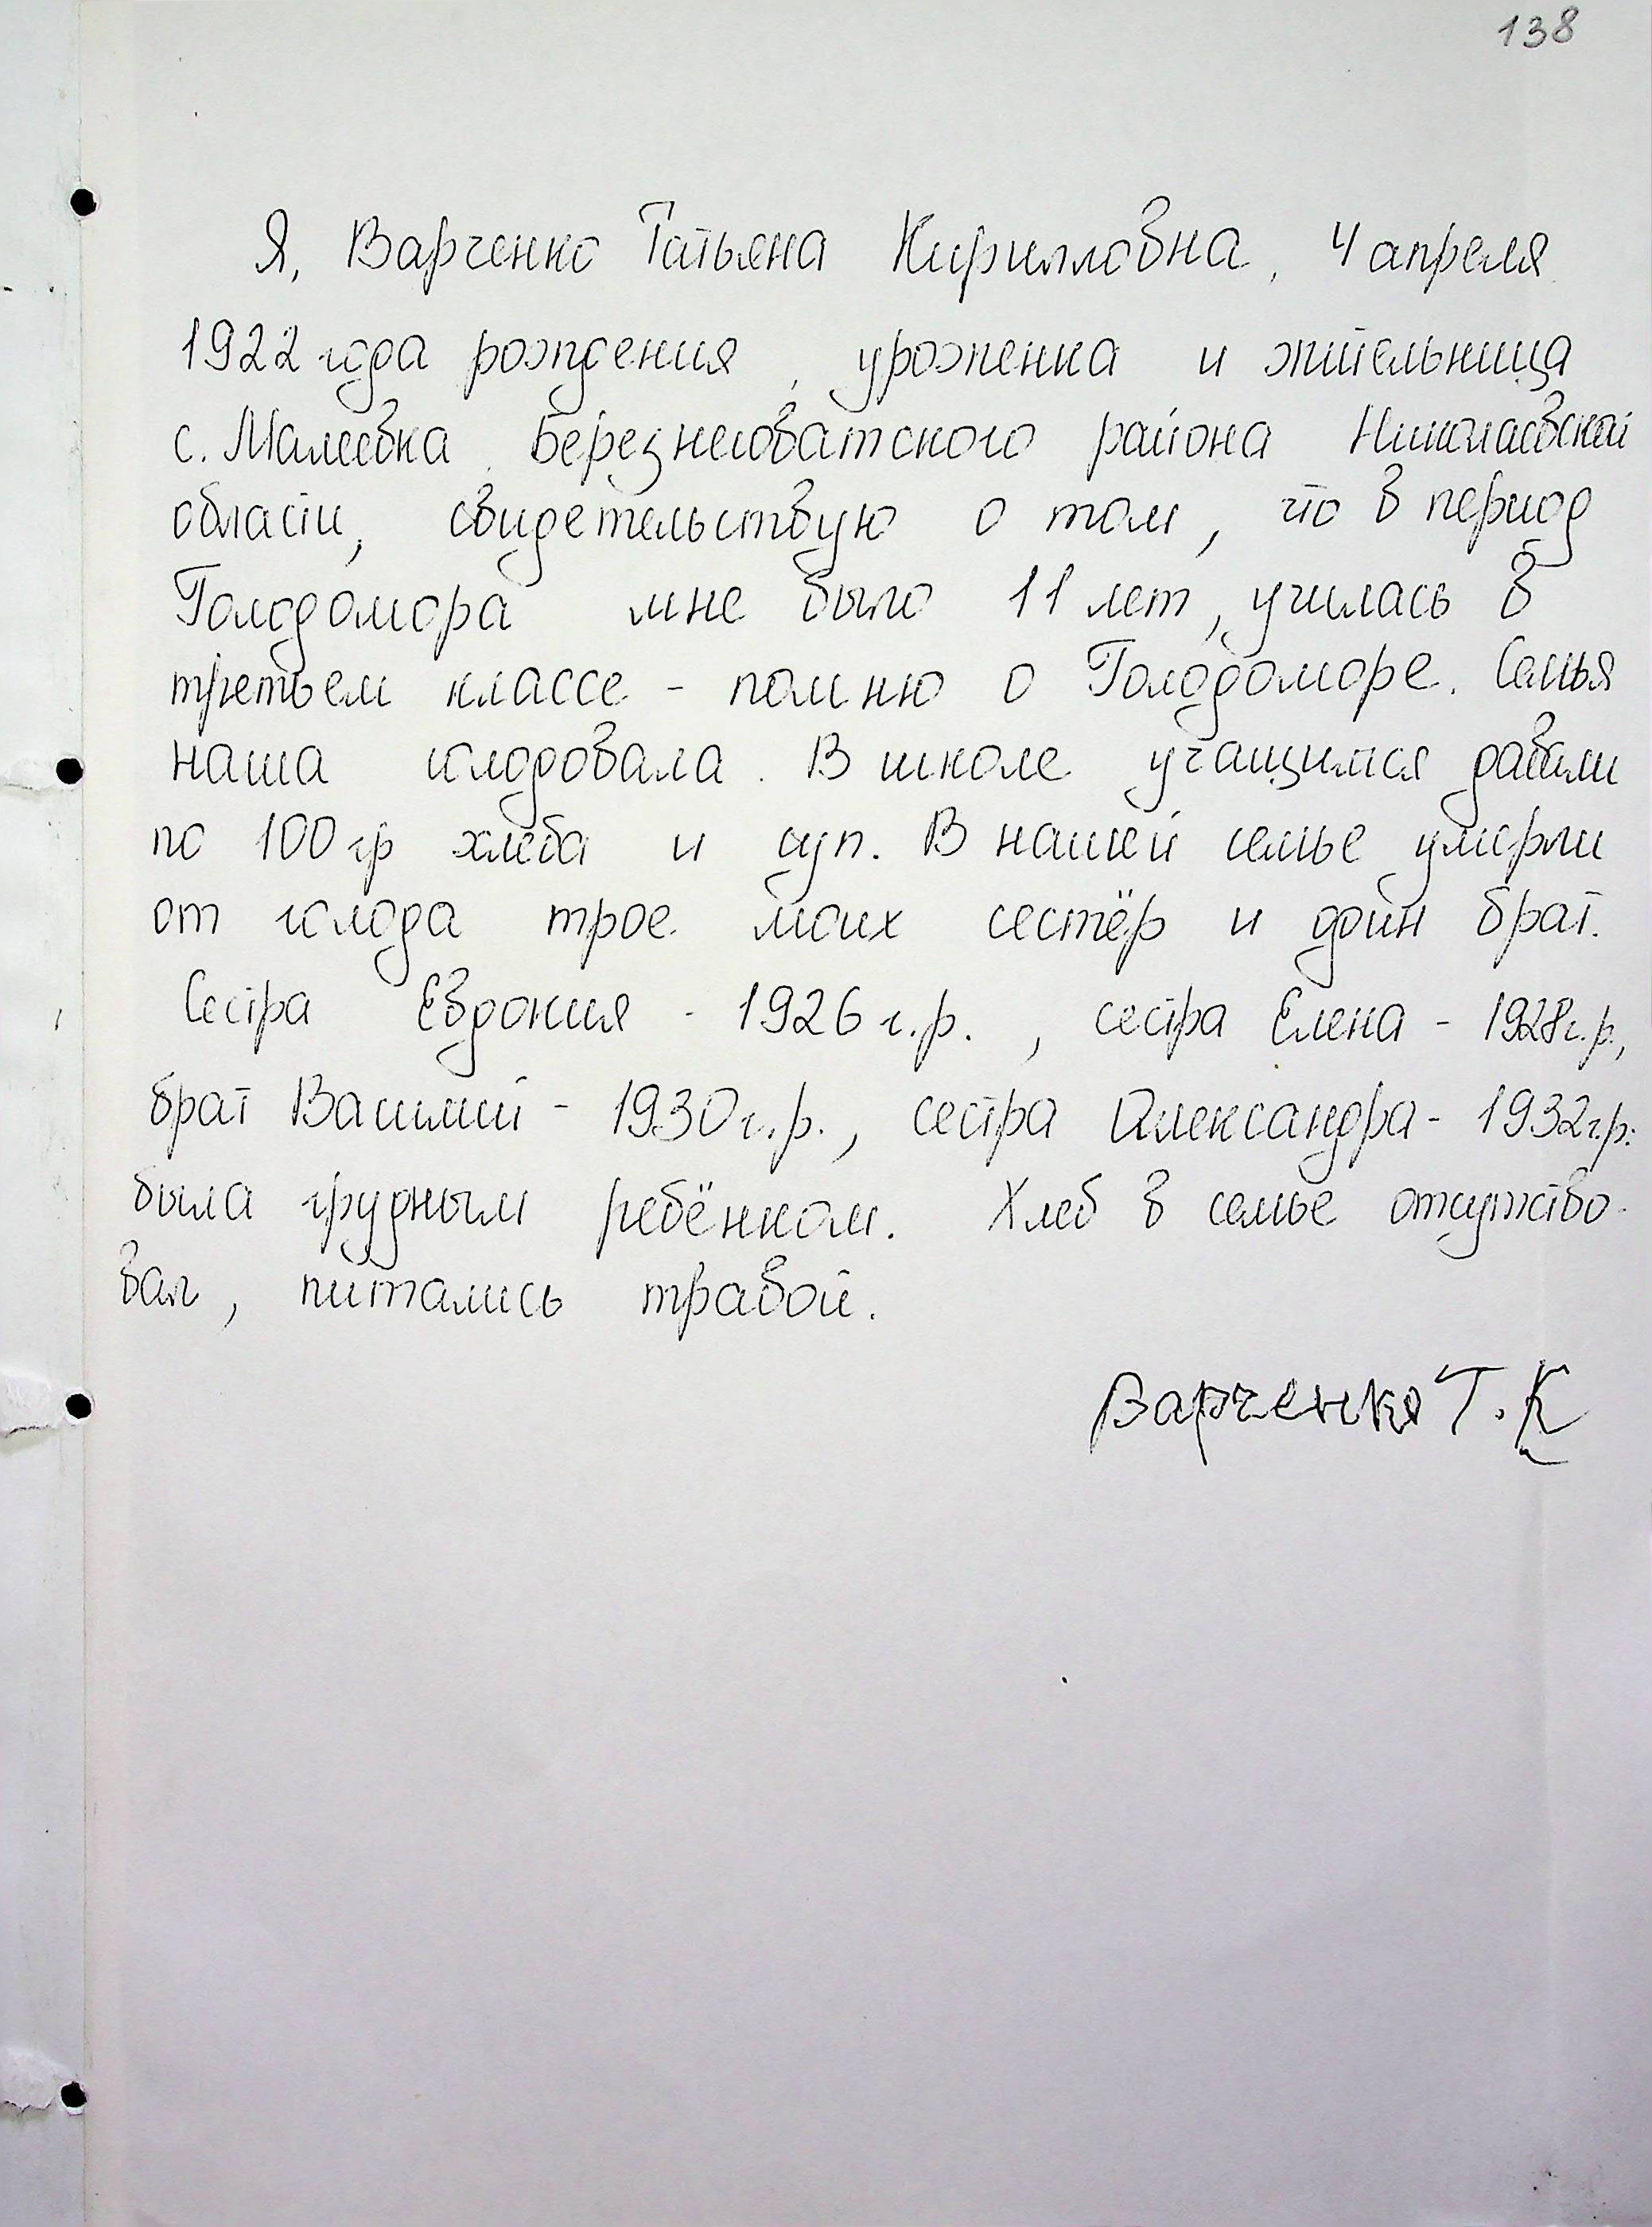 138
Я, Варченко Татьяна Кирилловна, 4 апреля
1922 года рождения, уроженка и жительница
с. Малеевка Березнеговатского района Николаевской
области, свидетельствую о том, что в период
Голодомора мне было 11 лет, училась в
третьем классе - помню о Голодоморе. Семья
наша голодовала. В школе учащимся давали
по 100 гр хлеба и суп. В нашей семье умерли
от голода трое моих сестёр и один брат.
Сестра Евдокия - 1926 г.р., сестра Елена - 1928 г.р.,
брат Василий - 1930 г.р., сестра Александра - 1932 г.р.
была грудным ребёнком. Хлеб в семье отсутство-
вал, питались травой.
Варченко Т.К